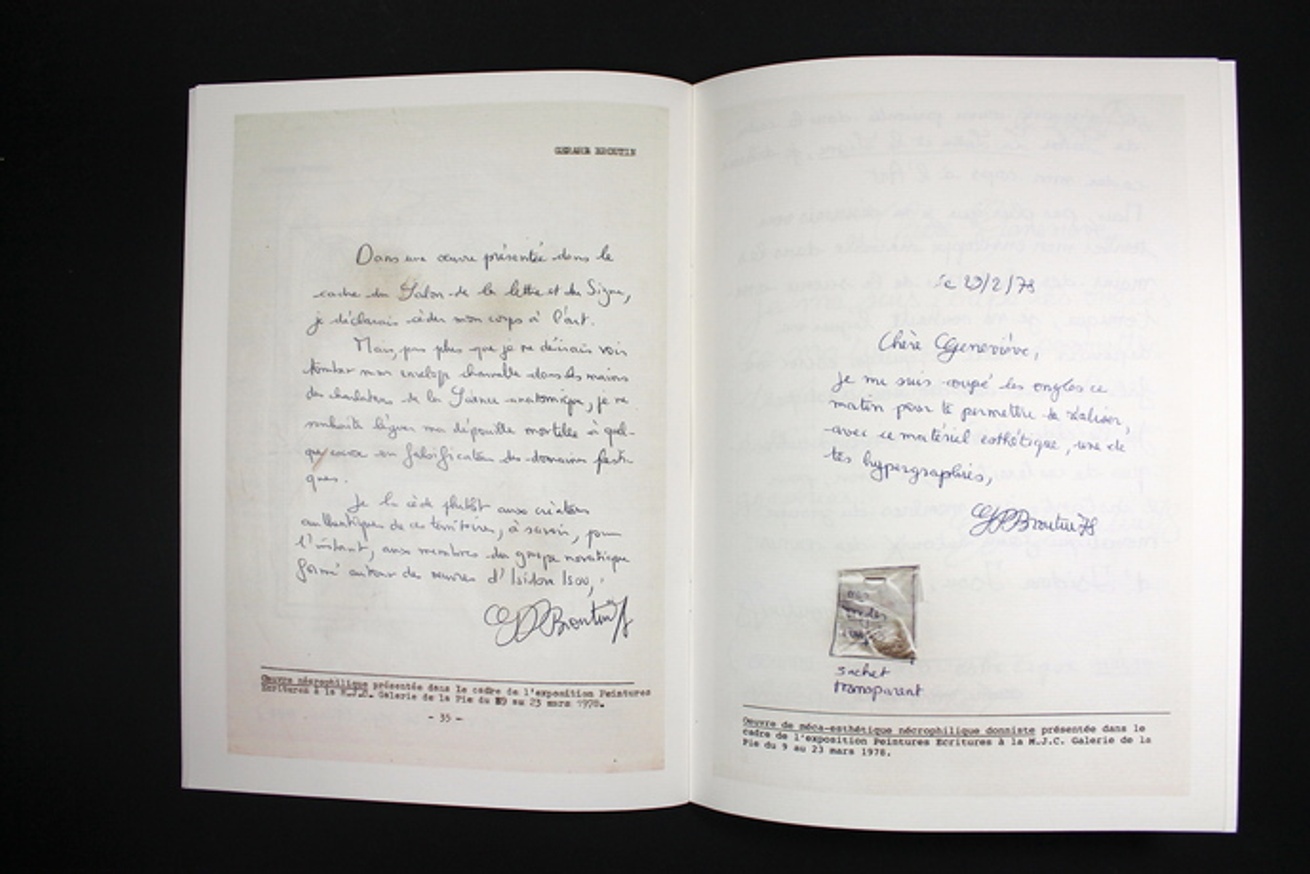 GERARD BROUTIN
Dans une œuvre présentée dans le
cadre du Salon de la lettre et du Signe,
je déclarais céder mon corps à l'art.
Mais, pas plus que je ne désirais voir
tomber mon envelope charnelle dans les mains
des charlatans de la Science anatomique, je ne
souhaite léguer ma dépouille mortelle à quel-
que falsificateur des domaines
ques.
Je la cède plutôt aux créateurs
authentiques de ces territoires, à savoir, pour
l'instant, aux membres du groupe novatique
formé autour des œuvres d'Isidore Isou,
GP Broutin
Œuvre nécrophilique présentée dans le cadre de l'exposition Peintures
Ecritures à la M.J.C. Galerie de la Pie du 9 au 23 mars 1978.
- 35 -
le 23/2/78
Chère Geneviève,
je me suis coupé les ongles ce
matin pour te permettre de réaliser,
avec ce matériel esthétique, une de
tes hypergraphies,
GP Broutin 78
sachet
transparent
Oeuvre de méca-esthétique nécrophilique donniste présentée dans le
cadre de l'exposition Peintures Ecritures à la M.J.C. Galerie de la
Pie du 9 au 23 mars 1978.